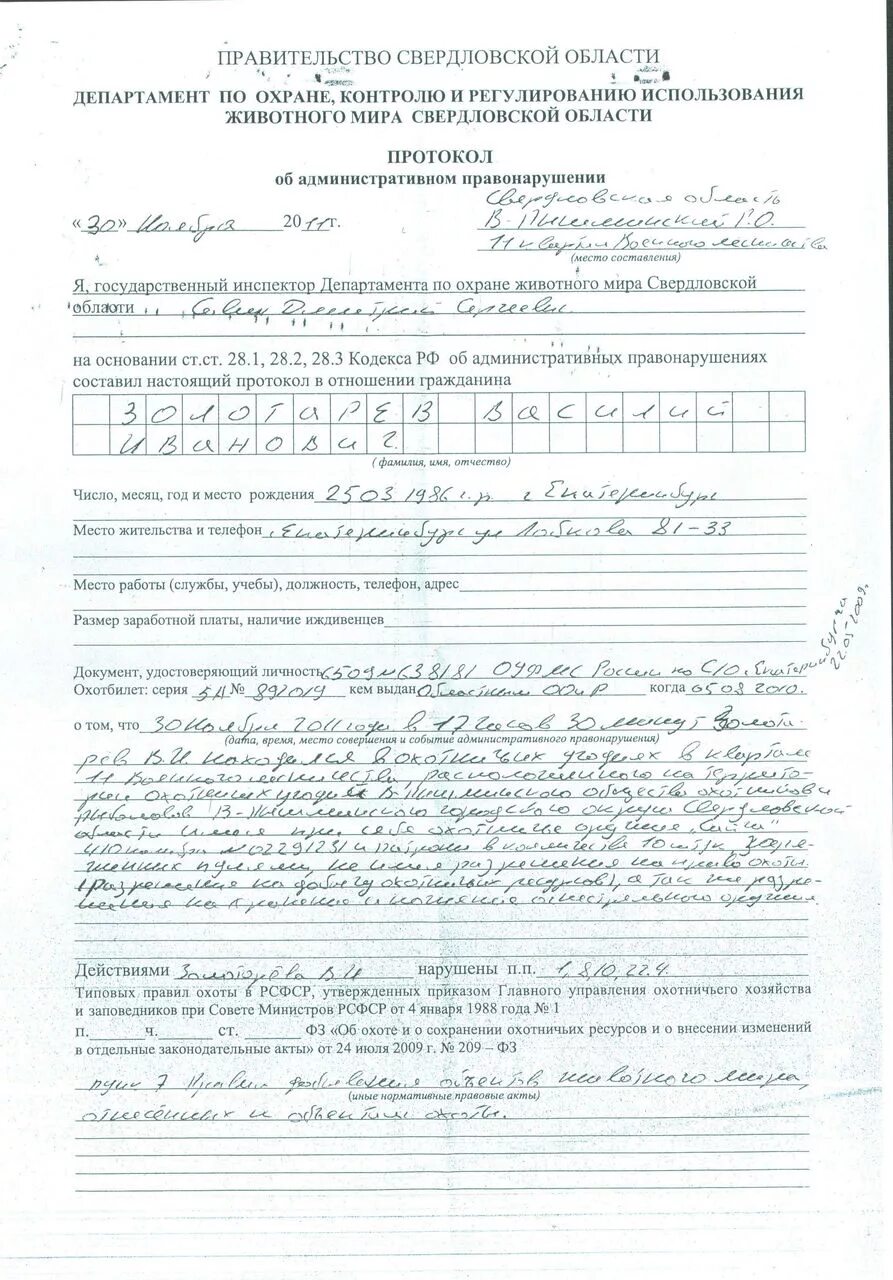 ПРАВИТЕЛЬСТВО СВЕРДЛОВСКОЙ ОБЛАСТИ
ДЕПАРТАМЕНТ ПО ОХРАНЕ, КОНТРОЛЮ И РЕГУЛИРОВАНИЮ ИСПОЛЬЗОВАНИЯ
ЖИВОТНОГО МИРА СВЕРДЛОВСКОЙ ОБЛАСТИ
ПРОТОКОЛ
об административном правонарушении
Свердловская область
«30» Ноября 2011г. В-Пышминский Г.О.
11 квартал Военного лесничества
(место составления)
Я, государственный инспектор Департамента по охране животного мира Свердловской
области Дмитрий Сергеевич
на основании ст.ст. 28.1, 28.2, 28.3 Кодекса РФ об административных правонарушениях
составил настоящий протокол в отношении гражданина
ЗОЛОТАРЕВ Василий
Иванович
(фамилия, имя, отчество)
Число, месяц, год и место рождения 25 03 1986 г.р. г Екатеринбург
Место жительства и телефон г. Екатеринбург ул Лобкова 81-33
Место работы (службы, учебы), должность, телефон, адрес
Размер заработной платы, наличие иждивенцев
Документ, удостоверяющий личность 6509 № 638181 ОУФМС России по С/О г. Екатеринбурга
22.05.2009г
Охотбилет: серия 5Д № 892019 кем выдан Областным ООиР когда 05 08 2010.
о том, что 30 Ноября 2011 года в 17 часов 30 минут Золота-
(дата, время, место совершения и событие административного правонарушения)
рев В.И. находился в охотничьих угодиях в квартале
11 Военного лесничества, расположенного на террито-
рии охотничьих угодий В-Пышминского общества охотников и
рыболовов В-Пышминского городского округа Свердловской
области имея при себе охотничье оружие "Сайга"
410 калибра № 02291231 и патроны в количестве 10 штук, заря-
женных пулями, не имея разрешения на право охоты
(разрешения на добычу охотничьих ресурсов), а так же разре-
шения на хранение и ношение огнестрельного оружия.
Действиями Золотарёва В.И нарушены п.п. 1, 8, 10, 22.4.
Типовых правил охоты в РСФСР, утвержденных приказом Главного управления охотничьего хозяйства
и заповедников при Совете Министров РСФСР от 4 января 1988 года № 1
п. ч. ст. ФЗ «Об охоте и о сохранении охотничьих ресурсов и о внесении изменений
в отдельные законодательные акты» от 24 июля 2009 г. № 209 – ФЗ
пункт 7 Правил добывания объектов животного мира,
(иные нормативные правовые акты)
отнесённых к объектам охоты.